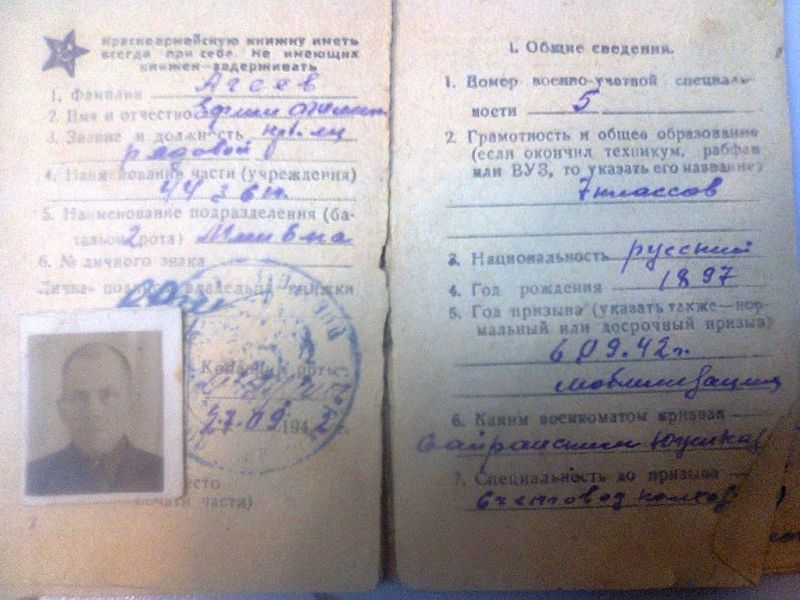 Красноармейскую книжку иметь
всегда при себе. Не имеющих
книжек—задерживать
1. Фамилия Агеев
2. Имя и отчество
3. Звание и должность кр-ец
рядовой
4. Наименование части (учреждения)
44 з
5. Наименование подразделения (ба-
тальон 2 рота)
6. № личного знака
Личная подпись владельца книжки
Командир
27.09 1942 г.
место
печати части)
2
I. Общие сведения.
1. Номер военно-учетной специаль-
ности 5
2. Грамотность и общее образование
(если окончил техникум, рабфак
или ВУЗ, то указать его название)
7 классов
3. Национальность русский
4. Год рождения 1897
5. Год призыва (указать также—нор-
мальный или досрочный призыв)
6 09.42 г.
мобилизация
6. Каким военкоматом призван
Сайрамским
7. Специальность до призыва
счетовод